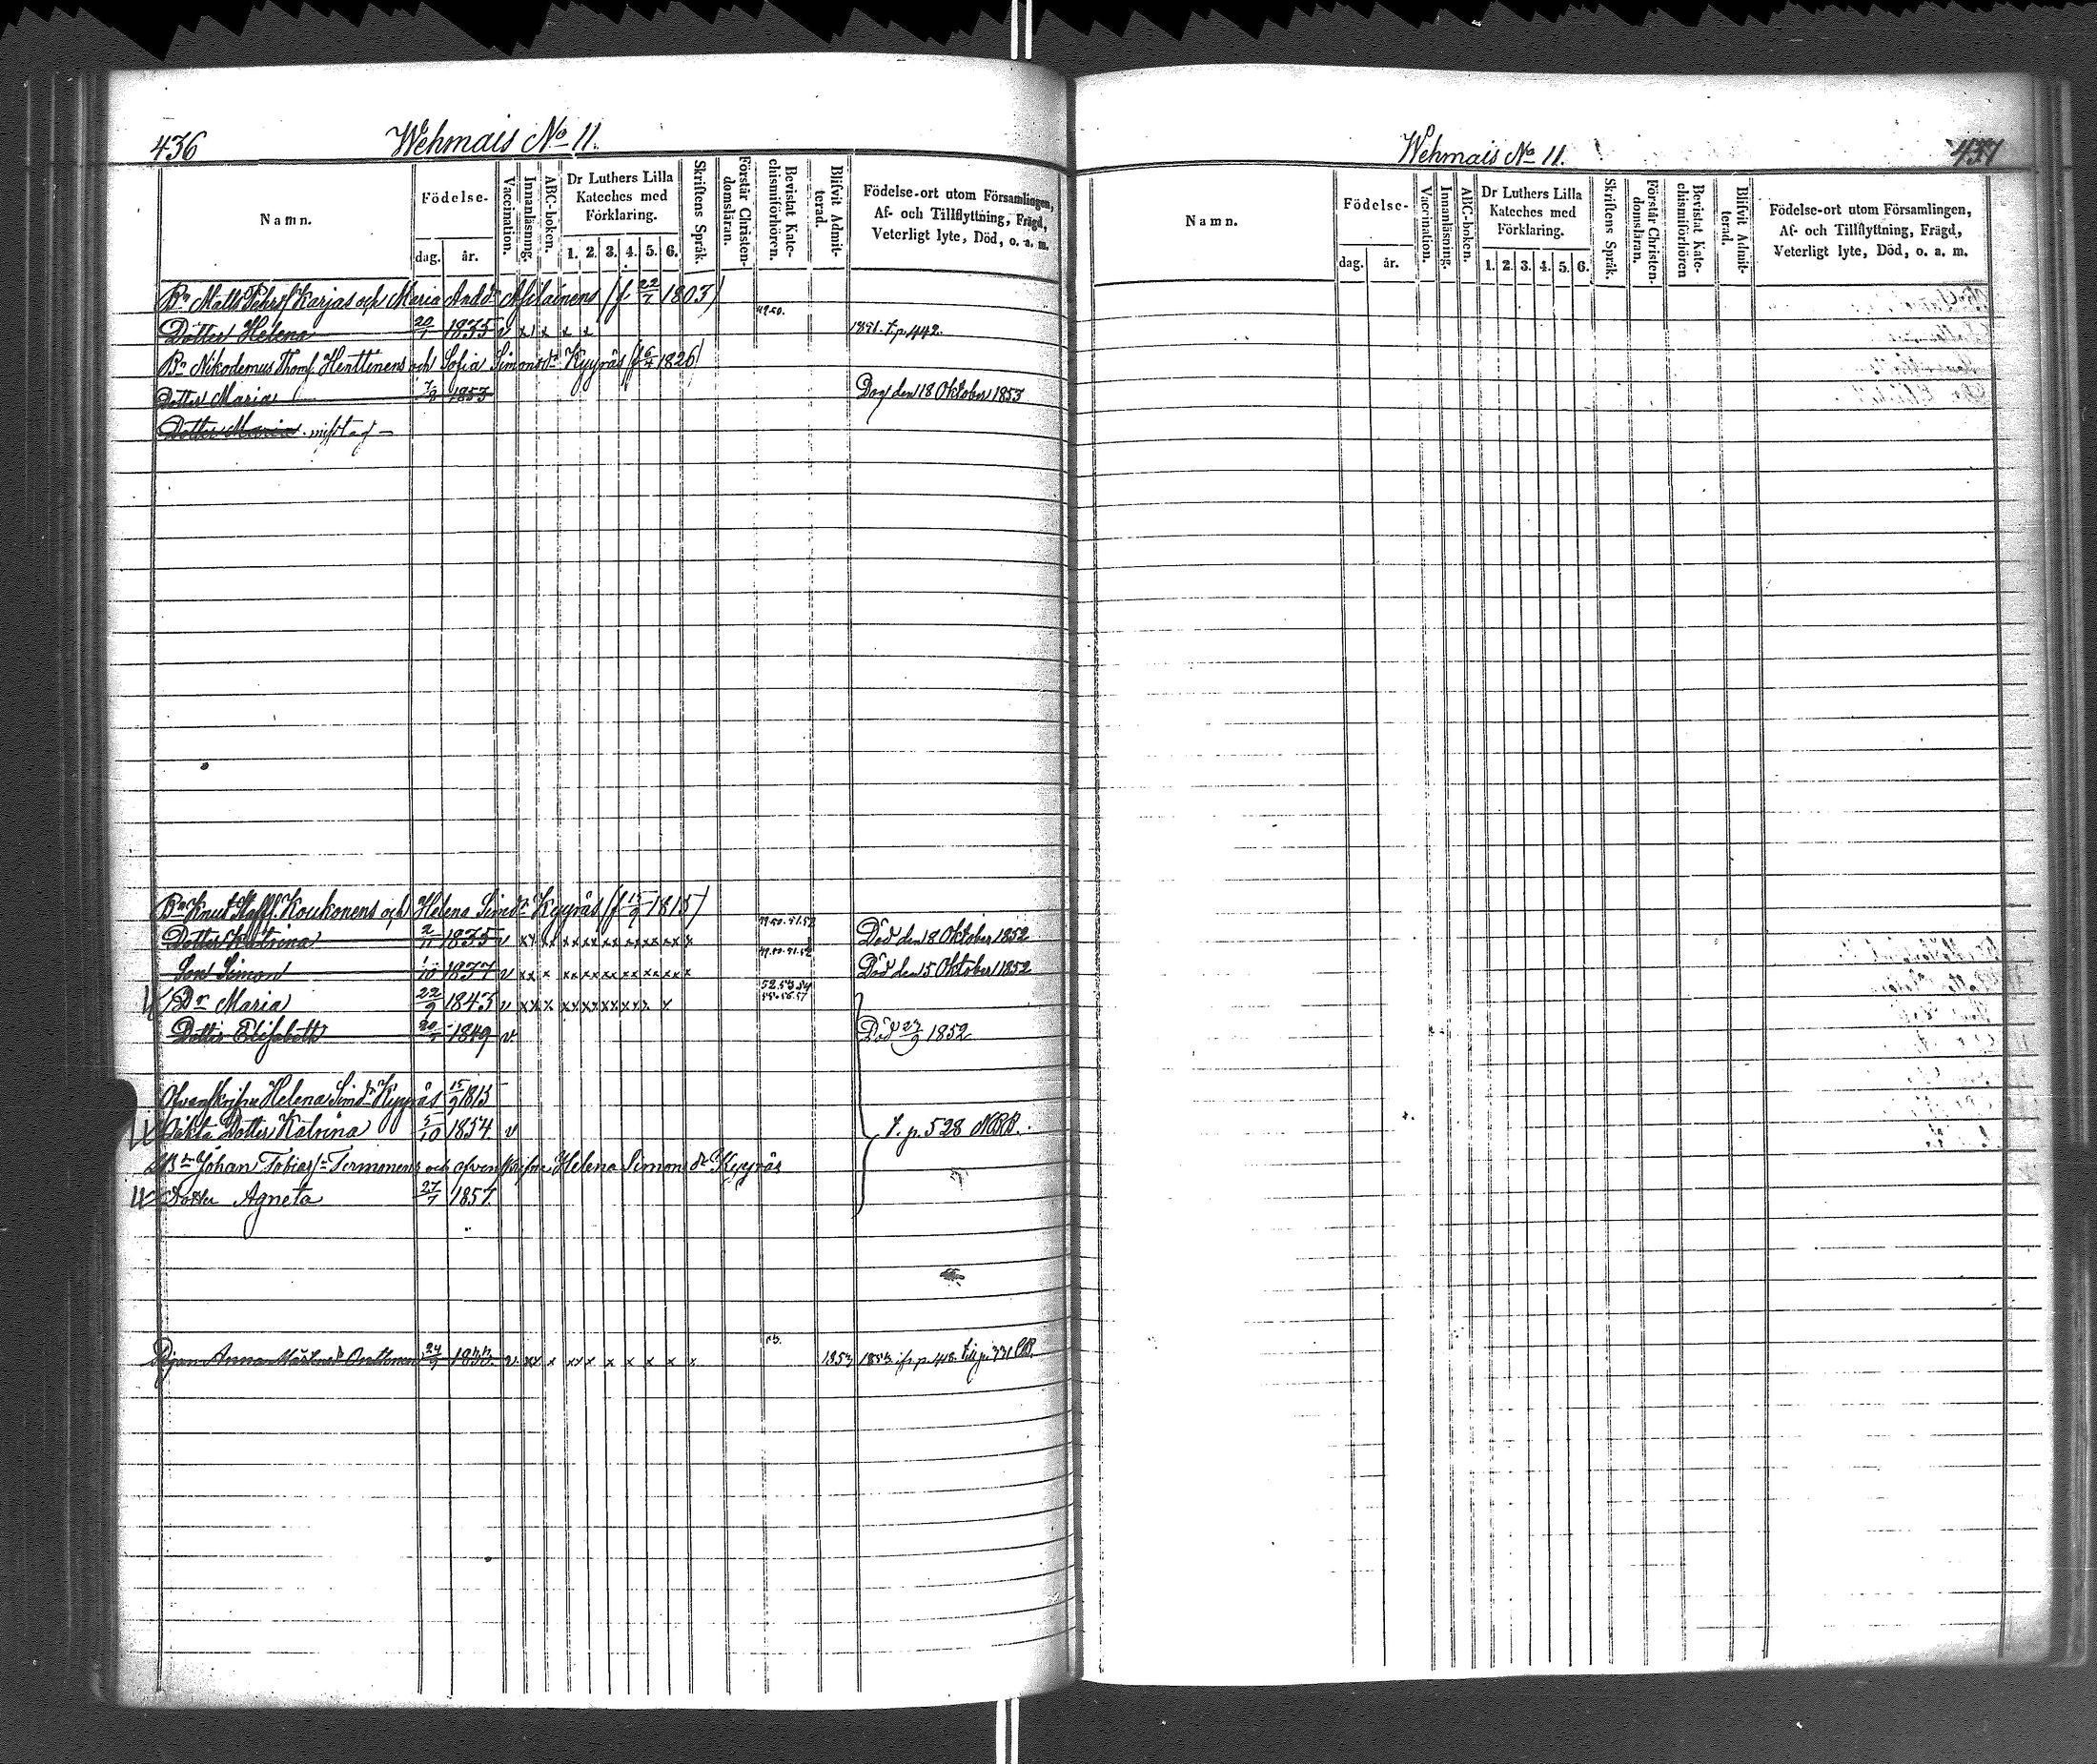 436 Wehmais No 11.
Namn. Födelse- dag. år. Vaccination. Innanläsning. ABC-boken. Dr Luthers Lilla Kateches med Förklaring. 1. 2. 3. 4. 5. 6. Skriftens Språk. Förstår Christendomsläran. Bevistat Katechismiförhören. Blifvit Admitterad. Födelse-ort utom Församlingen, Af- och Tillflyttning, Frägd, Veterligt lyte, Död, o. a. m.
Bn Matts Pehrsf Karjas och Maria Andd: Asilainens (f. 22/7 1803)
Dotter Helena 20/1 1835 v x x x x x 49.50. 1851. t. p. 442.
Bn Nikodemus Thomf. Henttinens och Sofia Simonsdr Kyyräs (f. 6/4 1826)
Dotter Maria 7/8 1853 Dog den 18 Oktober 1853
Dotter Maria. misstag —
Bn Knut Staff. Koukonens och Helena Simdr Kyyräs (f. 15/9 1815)
Dotter Katrina 2/11 1835 v xx xx xx xx xx xx xx xx x 49.50.51.52 Död den 8 Oktober 1852
Son Simon /10 1837 v xx x xx xx xx xx xx xx x 49.50.51.52 Död den 15 Oktober 1852
Dr Maria 22/9 1843 v xx x xx xx xx xx x x 52.53.54 55.56.57
Dotter Elisabeth 20/ 1849 v Död 27/9 1852
Ofvanskrifne Helena Simdr Kyyräs 15/9 1815
Oäkta Dotter Katrina 5/10 1854. v t. p. 528 NBB.
Bn Johan Tobiasf: Termonens och ofvanskrifne Helena Simons dr Kyyräs
Dotter Agneta 27/7 1857.
Pigan Anna Mårtensdr Onttonen 24/9 1833. v. xx x xx x x x x x x 53. 1853 1853 ifr. p. 418. till p. 331
Wehmais No 11. 437
Namn. Födelse- dag. år. Vaccination. Innanläsning. ABC-boken. Dr Luthers Lilla Kateches med Förklaring. 1. 2. 3. 4. 5. 6. Skriftens Språk. Förstår Christendomsläran. Bevistat Katechismiförhören Blifvit Admitterad. Födelse-ort utom Församlingen, Af- och Tillflyttning, Frägd, Veterligt lyte, Död, o. a. m.